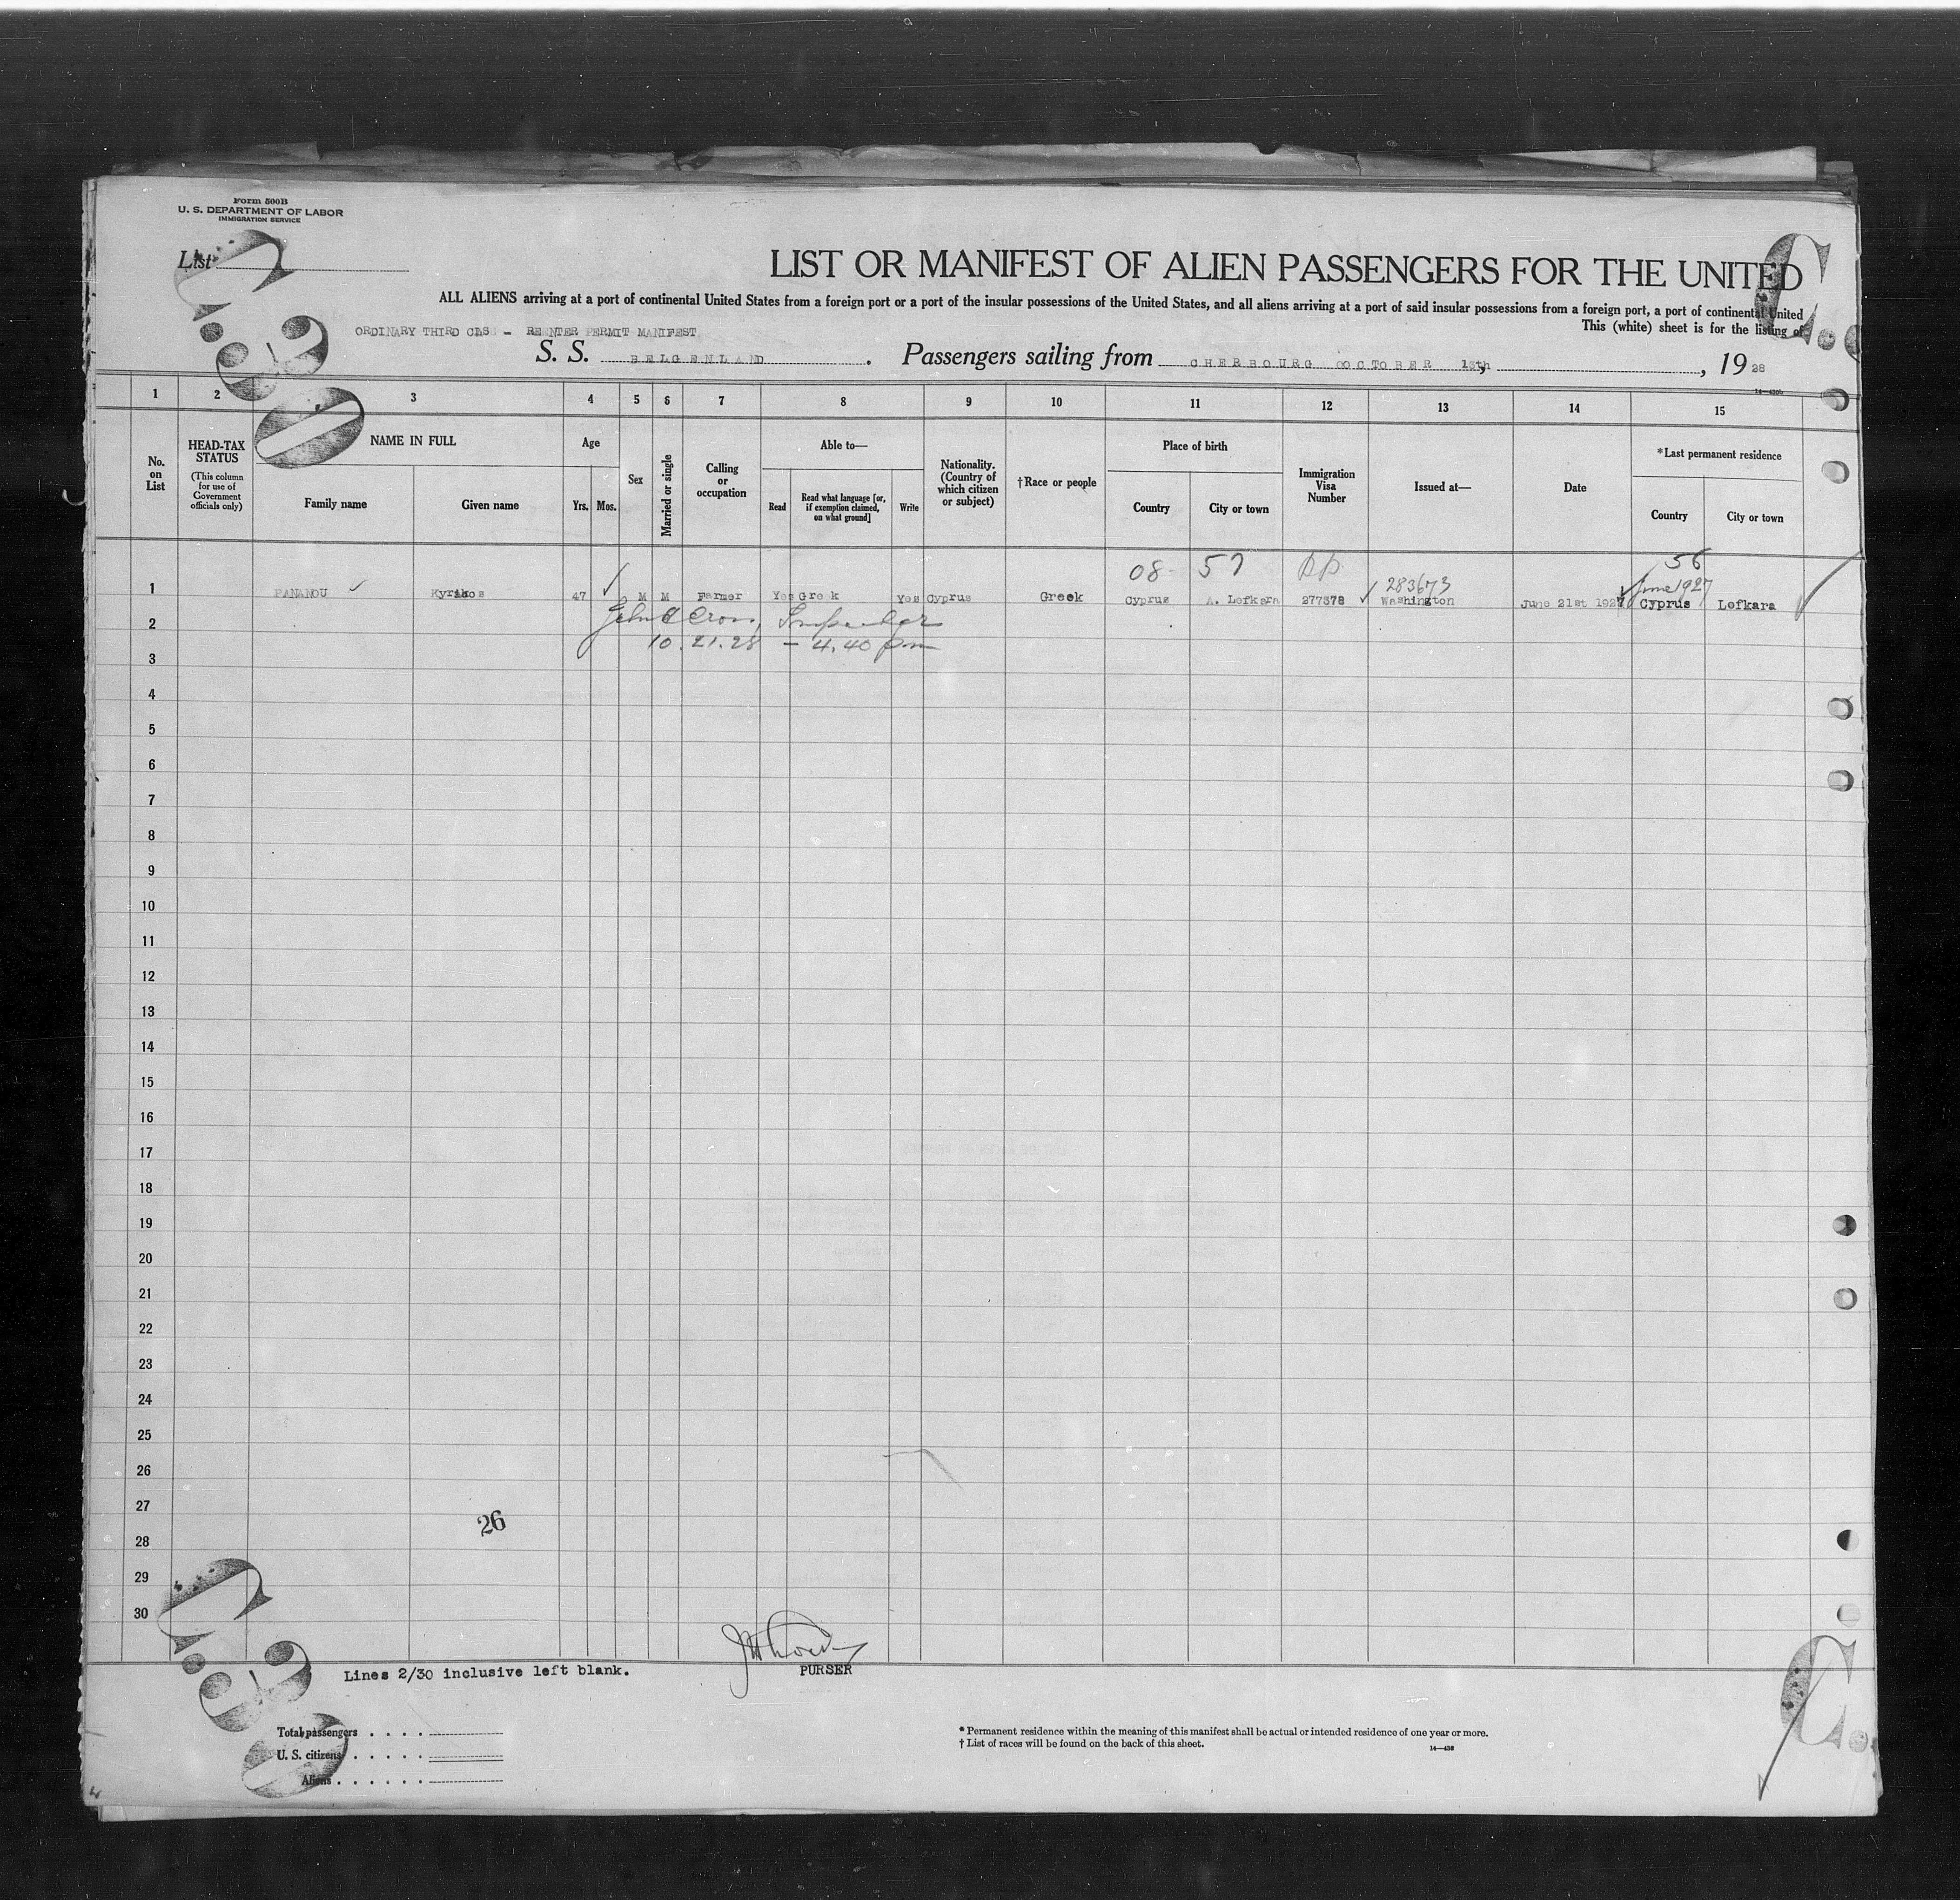 Form 500B
U. S. DEPARTMENT OF LABOR
IMMIGRATION SERVICE
List
LIST OR MANIFEST OF ALIEN PASSENGERS FOR THE UNITED
ALL ALIENS arriving at a port of continental United States from a foreign port or a port of the insular possessions of the United States, and all aliens arriving at a port of said insular possessions from a foreign port, a port of continental United
This (white) sheet is for the listing of
ORDINARY THIRD CLSS - REENTER PERMIT MANIFEST
S. S. BELGENLAND. Passengers sailing from CHERBOURG OCTOBER 13th, 1928
14—430b
1 2 3 4 5 6 7 8 9 10 11 12 13 14 15
No. on List
HEAD-TAX STATUS (This column for use of Government officials only)
NAME IN FULL
Family name Given name
Age
Yrs. Mos.
Sex
Married or single
Calling or occupation
Able to—
Read Read what language [or, if exemption claimed, on what ground] Write
Nationality. (Country of which citizen or subject)
†Race or people
Place of birth
Country City or town
Immigration Visa Number
Issued at—
Date
*Last permanent residence
Country City or town
08 57 pp 56
283673 June 1927
1 PANANOU Kyriakos 47 M M Farmer Yes Greek Yes Cyprus Greek Cyprus A. Lefkara 277378 Washington June 21st 1927 Cyprus Lefkara
2 Inspector
3 10.21.28 - 4.40 pm
4
5
6
7
8
9
10
11
12
13
14
15
16
17
18
19
20
21
22
23
24
25
26
27
26
28
29
30
Lines 2/30 inclusive left blank.
PURSER
Total passengers
U. S. citizens
Aliens
* Permanent residence within the meaning of this manifest shall be actual or intended residence of one year or more.
† List of races will be found on the back of this sheet.